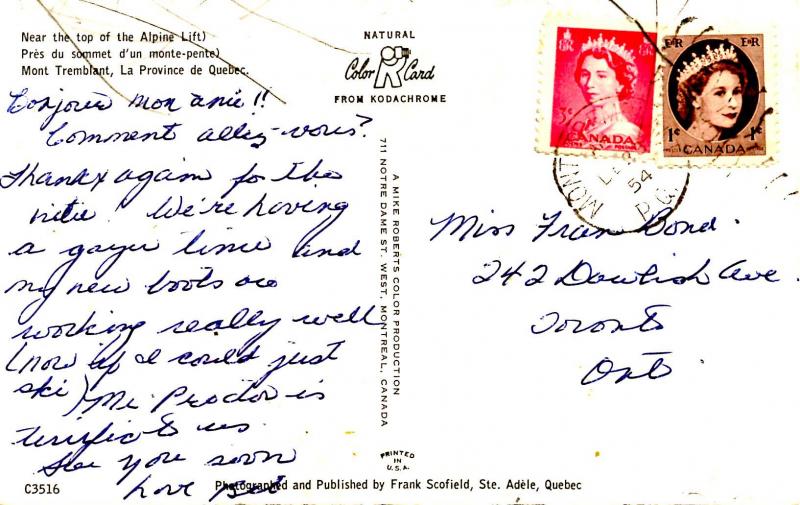 Near the top of the Alpine Lift)
Près du sommet d'un monte-pente)
Mont Tremblant, La Province de Quebec.
NATURAL
Color Card
FROM KODACHROME
Bonjour mon amie!!
Comment allez-vous?
Thanks again for the
We're having
a gayer time and
my new boots are
working really well
(now if I could just
ski) Mr Proctor is
terrific to us
See you soon
Love
A MIKE ROBERTS COLOR PRODUCTION
711 NOTRE DAME ST. WEST, MONTREAL, CANADA
PRINTED
IN
U.S.A.
3c
CANADA
E R
E R
1c
1c
CANADA
MONT
54
P.Q.
Miss Fran Bond.
242 Dawlish Ave.
Toronto
Ont.
C3516
Photographed and Published by Frank Scofield, Ste. Adèle, Quebec